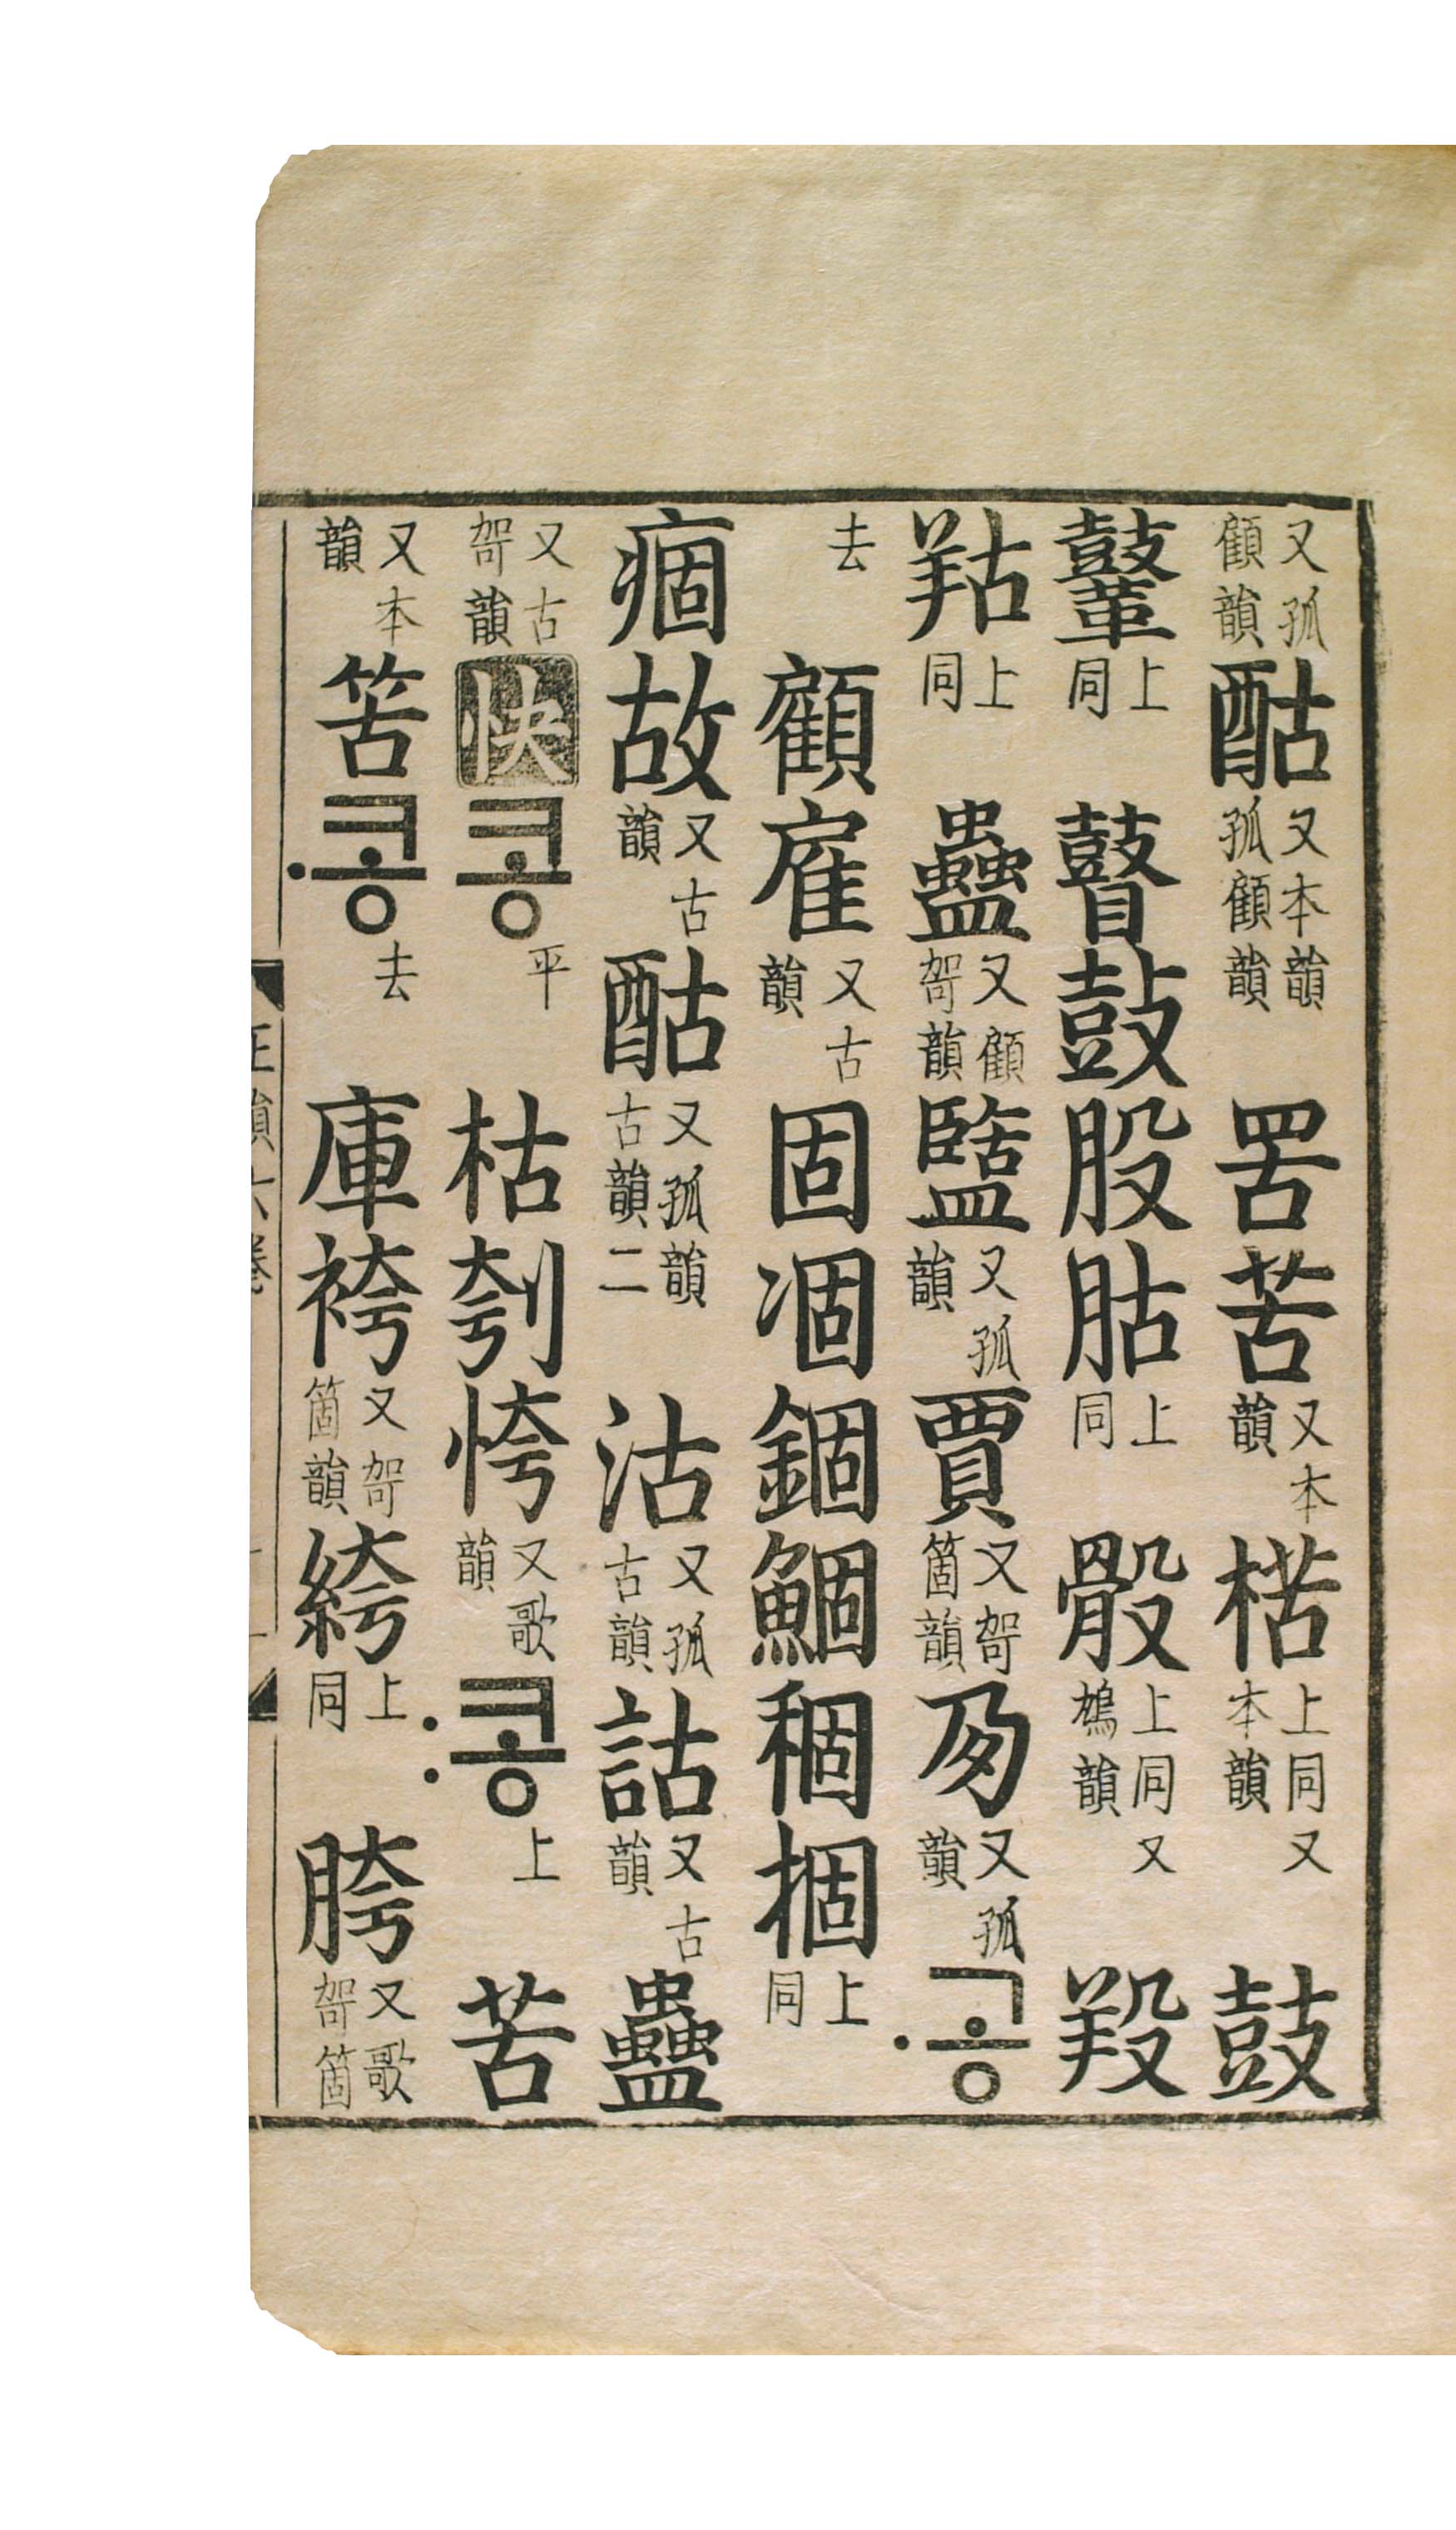 又孤顧韻酤又本韻孤顧韻罟苦又本韻楛上同又本韻鼓
上同瞽鼔股𦙶上同骰上同又鳩韻羖
𦍩上同蠱又顧哿韻盬又孤韻賈又哿箇韻夃又孤韻공〮
去顧雇又古韻固凅錮鯝稒㧽上同
痼故又古韻酤又孤韻古韻二沽又孤古韻詁又古韻蠱
又古哿韻快콩平枯刳恗又歌韻콩〯上苦
又本韻콩〮去庫袴又哿箇韻絝上同胯又歌哿箇
正韻六卷